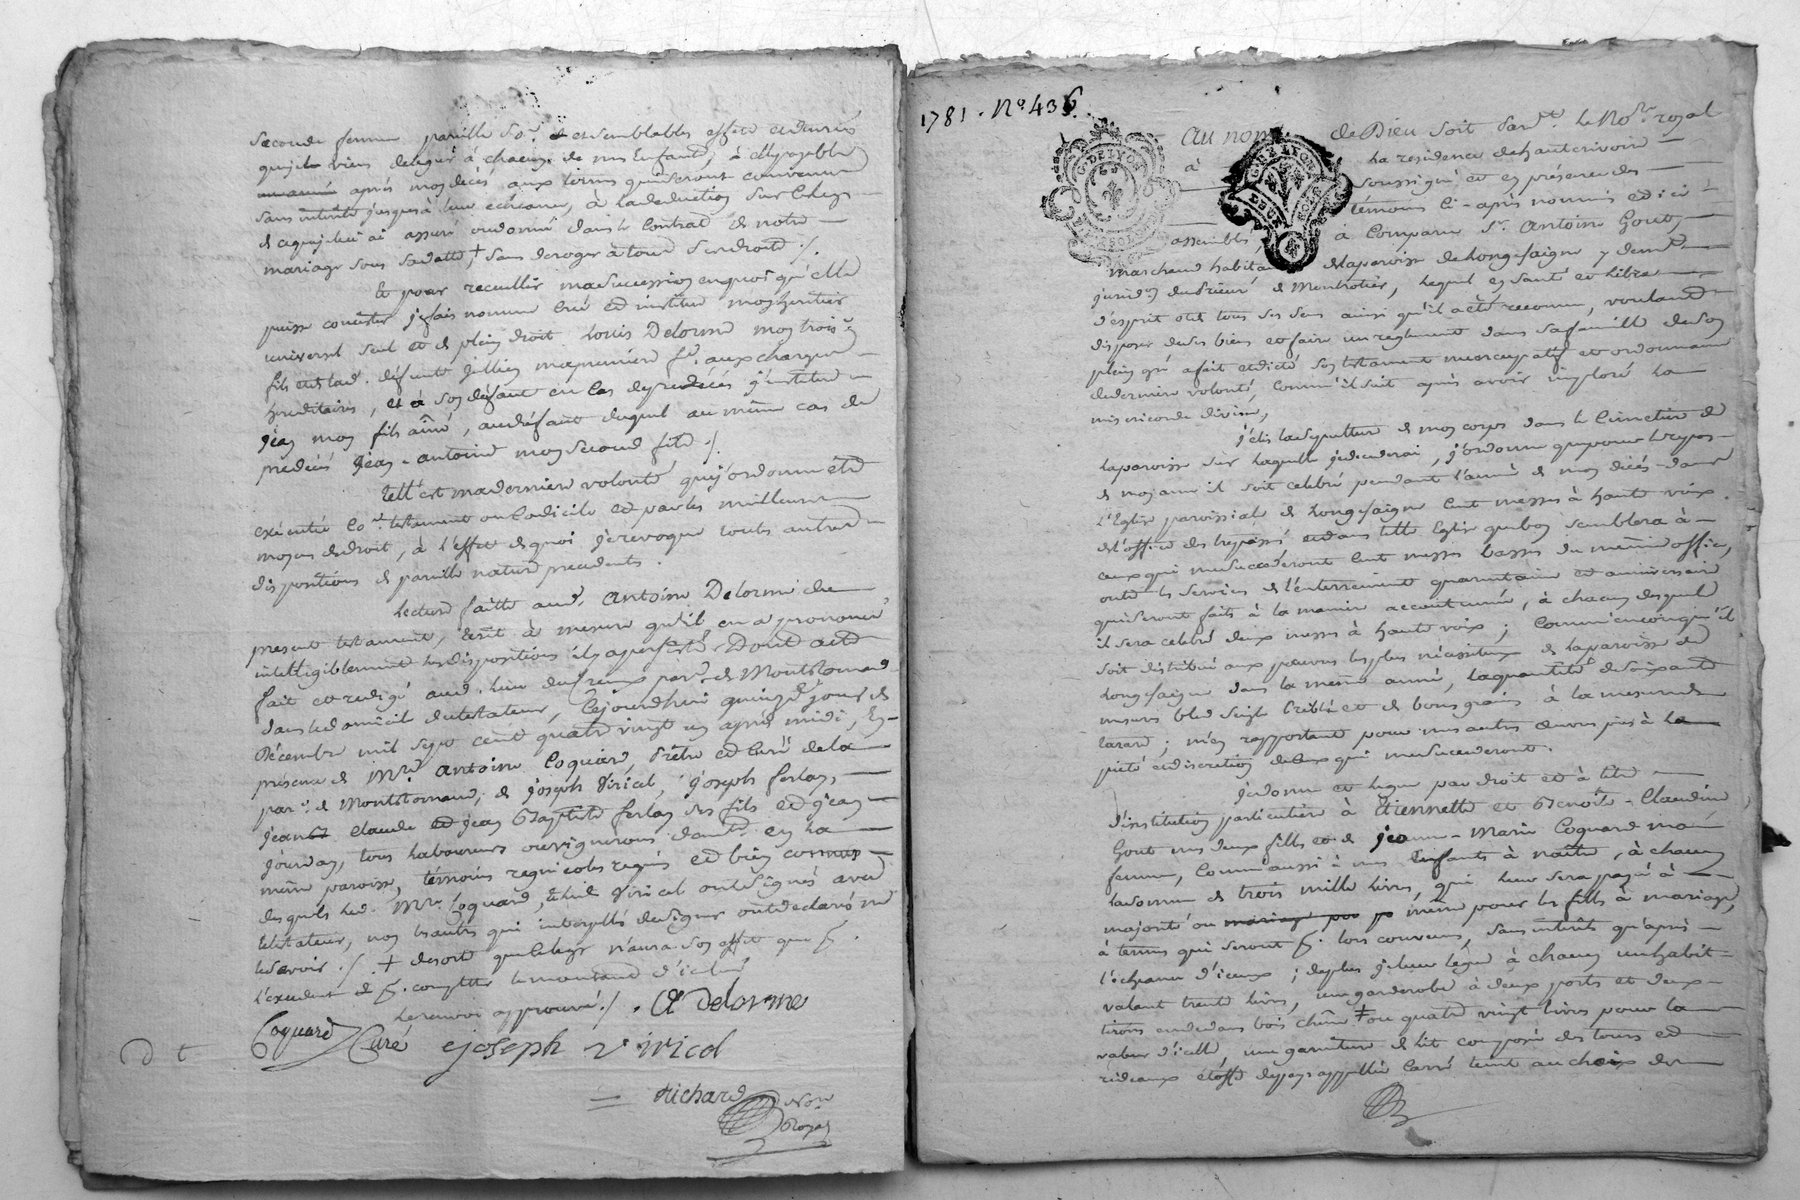 seconde femme pareille so.e et semblables effets et denrés
que je viens deleguer à chacun de mes Enfants, à elle payable
après mon décès aux termes qui seront convenus
sans intérêts jusques à leur echéance, à la deduction sur le legs
de ce que je lui ai assuré ou donné dans le Contrat de notre
mariage sous sa datte, + sans deroger à tous ses droits ./.
Et pour recueillir ma succession en quoi qu'elle
puisse consister je fais nomme crée et institue mon heritier
universel seul et de plein droit Louis Delorme mon trois.e
fils et de lad. défunte Jullien ma premiere f.e aux charges
hereditaires, et à son défaut en cas de predécés j'institue
Jean mon fils aîné, au défaut duquel au même cas de
predécés Jean-antoine mon second fils ./.
Tell'est ma derniere volonté que j'ordonne être
exécutée co.e testament ou Codicile et par les meilleurs
moyens de droit, à l'effet de quoi je revoque toutes autres
dispositions de pareille nature precedentes.
Lecture faitte aud. antoine Delorme du
present testament, Ecrit à mesure qu'il en a prononcé
intelligiblement les dispositions il y a persisté. Dont acte
fait et redigé aud. lieu de par.e de Montromand
dans le domicile du testateur, Cejourdhui quinze jours de
Décembre mil sept cent quatre vingt un après midi, En
présence de M.re antoine Coquard, Prêtre et Curé de la
par.e de Montromand, de joseph Viricel, joseph ferlay,
jean claude et jean Baptiste ferlay ses fils et jean
jourday, tous laboureurs ou vignerons dem.ts en la
même paroisse, témoins regnicoles requis et bien connus
desquels led. M.re Coquard, led. Viricel ont signés avec
testateur, non les autres qui interpellés de signer ont declaré ne
le savoir ./. + de sorte que le legs n'aura son effet que p.r
l'excedent et p.r completter le montant d'icelui
le renvoi approuvé ./. A Delorme
Coquard Curé joseph viricel
Richard
Not.re
Royal
1781. N.o 436.
G. DE LYON
GNE LYON
DEUX SOLS
au nom de Dieu soit Par.t le No.re royal
à la residence de hauterivoire
soussigné et en présence des
témoins Ci-après nommés et ici
assemblés, a Comparu S.r Antoine Gouty
marchand habitant de la paroisse de Longessaigne y dem.t
jurid.on du Prieuré de Montrotier, lequel en santé et libre
d'esprit et de tous ses sens ainsi qu'il a été reconnu, voulant
disposer de ses biens et faire un reglement dans sa famille de son
plein gré a fait et dicté son testament nuncupatif et ordonnance
de derniere volonté, Comm'il suit après avoir imploré la
misericorde divine,
j'élis la sepulture de mon corps dans le Cimetiere de
la paroisse sur laquelle je decederai, j'ordonne que pour le repos
de mon ame il soit celebré pendant l'année de mon décés dans
l'Eglise paroissiale de Longessaigne Cent messes à haute voix
de l'office des trepassés et dans telle Eglise que bon semblera à
ceux qui me succederont Cent messes basses du même office,
outre les services de l'enterrement quarantaine et anniversaire
qui seront faits à la maniere accoutumée, à chacun desquels
il sera celebré deux messes à haute voix; Comm'encore qu'il
soit distribué aux pauvres les plus nécessiteux de la paroisse de
Longessaigne dans la même année, la quantité de soixante
mesures bled seigle criblé et de bons grains à la mesure de
tarare; m'en rapportant pour mes autres œuvres pies à la
pieté et discretion de ceux qui me succederont.
je donne et legue par droit et à titre
d'institution particuliere à Etiennette et Benoîte-Claudine
Gouty mes deux filles et de jeanne-Marie Coquard ma
femme, Comm'aussi à mes Enfants à naître, à chacun
la somme de trois mille livres, qui leur sera payée à
majorité ou mariage même pour les filles à mariage,
à termes qui seront p.r lors convenus, sans intérêts qu'après
l'échéance d'iceux; de plus je leur legue à chacun un habit
valant trente livres, une garderobe à deux portes et deux
tiroirs au dedans bois chêne ǂ ou quatre vingt livres pour la
valeur d'icelle, une garniture de lit composée des tours et
rideaux étoffe de pays appellée Carré teint au choix des